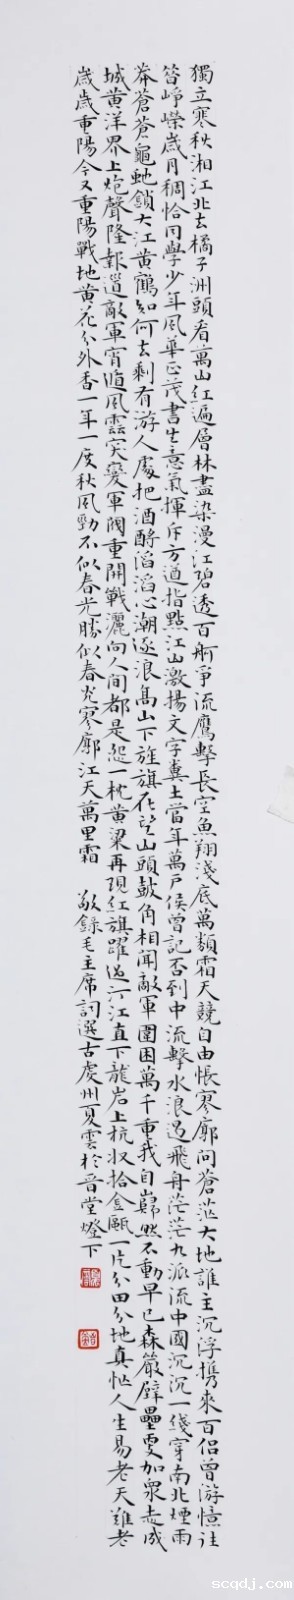 獨立寒秋湘江北去橘子洲頭看萬山紅遍層林盡染漫江碧透百舸爭流鷹擊長空魚翔淺底萬類霜天競自由悵寥廓問蒼茫大地誰主沉浮攜來百侶曾游憶往
昔崢嶸歲月稠恰同學少年風華正茂書生意氣揮斥方遒指點江山激揚文字糞土當年萬戶侯曾記否到中流擊水浪遏飛舟茫茫九派流中國沉沉一綫穿南北煙雨
莽蒼蒼龜虵鎖大江黃鶴知何去剩有游人處把酒酹滔滔心潮逐浪高山下旌旗在望山頭鼓角相聞敵軍圍困萬千重我自巋然不動早已森嚴壁壘更加眾志成
城黃洋界上炮聲隆報道敵軍宵遁風雲突變軍閥重開戰灑向人間都是怨一枕黃粱再現紅旗躍過汀江直下龍岩上杭收拾金甌一片分田分地真忙人生易老天難老
歲歲重陽今又重陽戰地黃花分外香一年一度秋風勁不似春光勝似春光寥廓江天萬里霜 敬錄毛主席詞選古虔州夏雲於晉堂燈下
scqdj.com